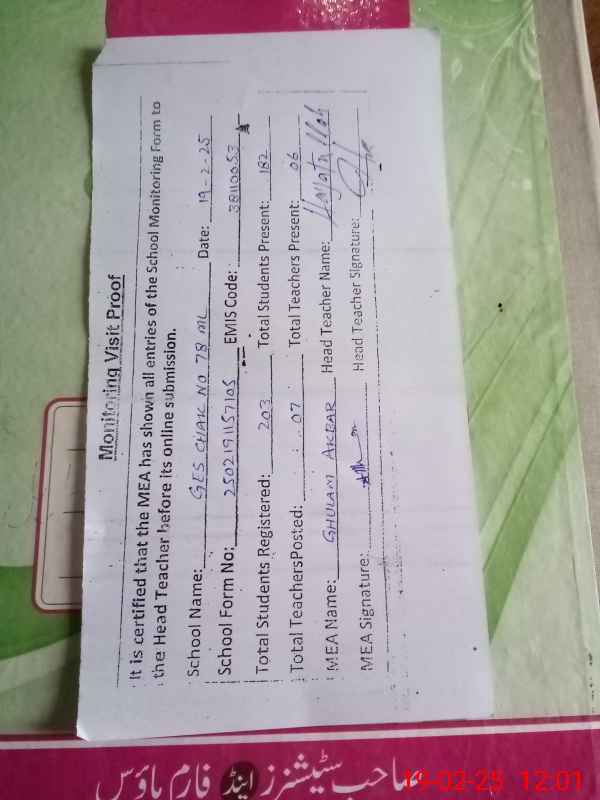 Monitoring Visit Proof
It is certified that the MEA has shown all entries of the School Monitoring Form to
the Head Teacher before its online submission.
School Name: GES CHAK NO 78 ML Date: 19-2-25
School Form No: 2502191157105 EMIS Code: 38110053
Total Students Registered: 203 Total Students Present: 182
Total TeachersPosted: 07 Total Teachers Present: 06
MEA Name: GHULAM AKBAR Head Teacher Name: Hayatullah
MEA Signature: Head Teacher Signature:
صاحب سٹیشنرز اینڈ فارم ہاؤس
19-02-25 12:01